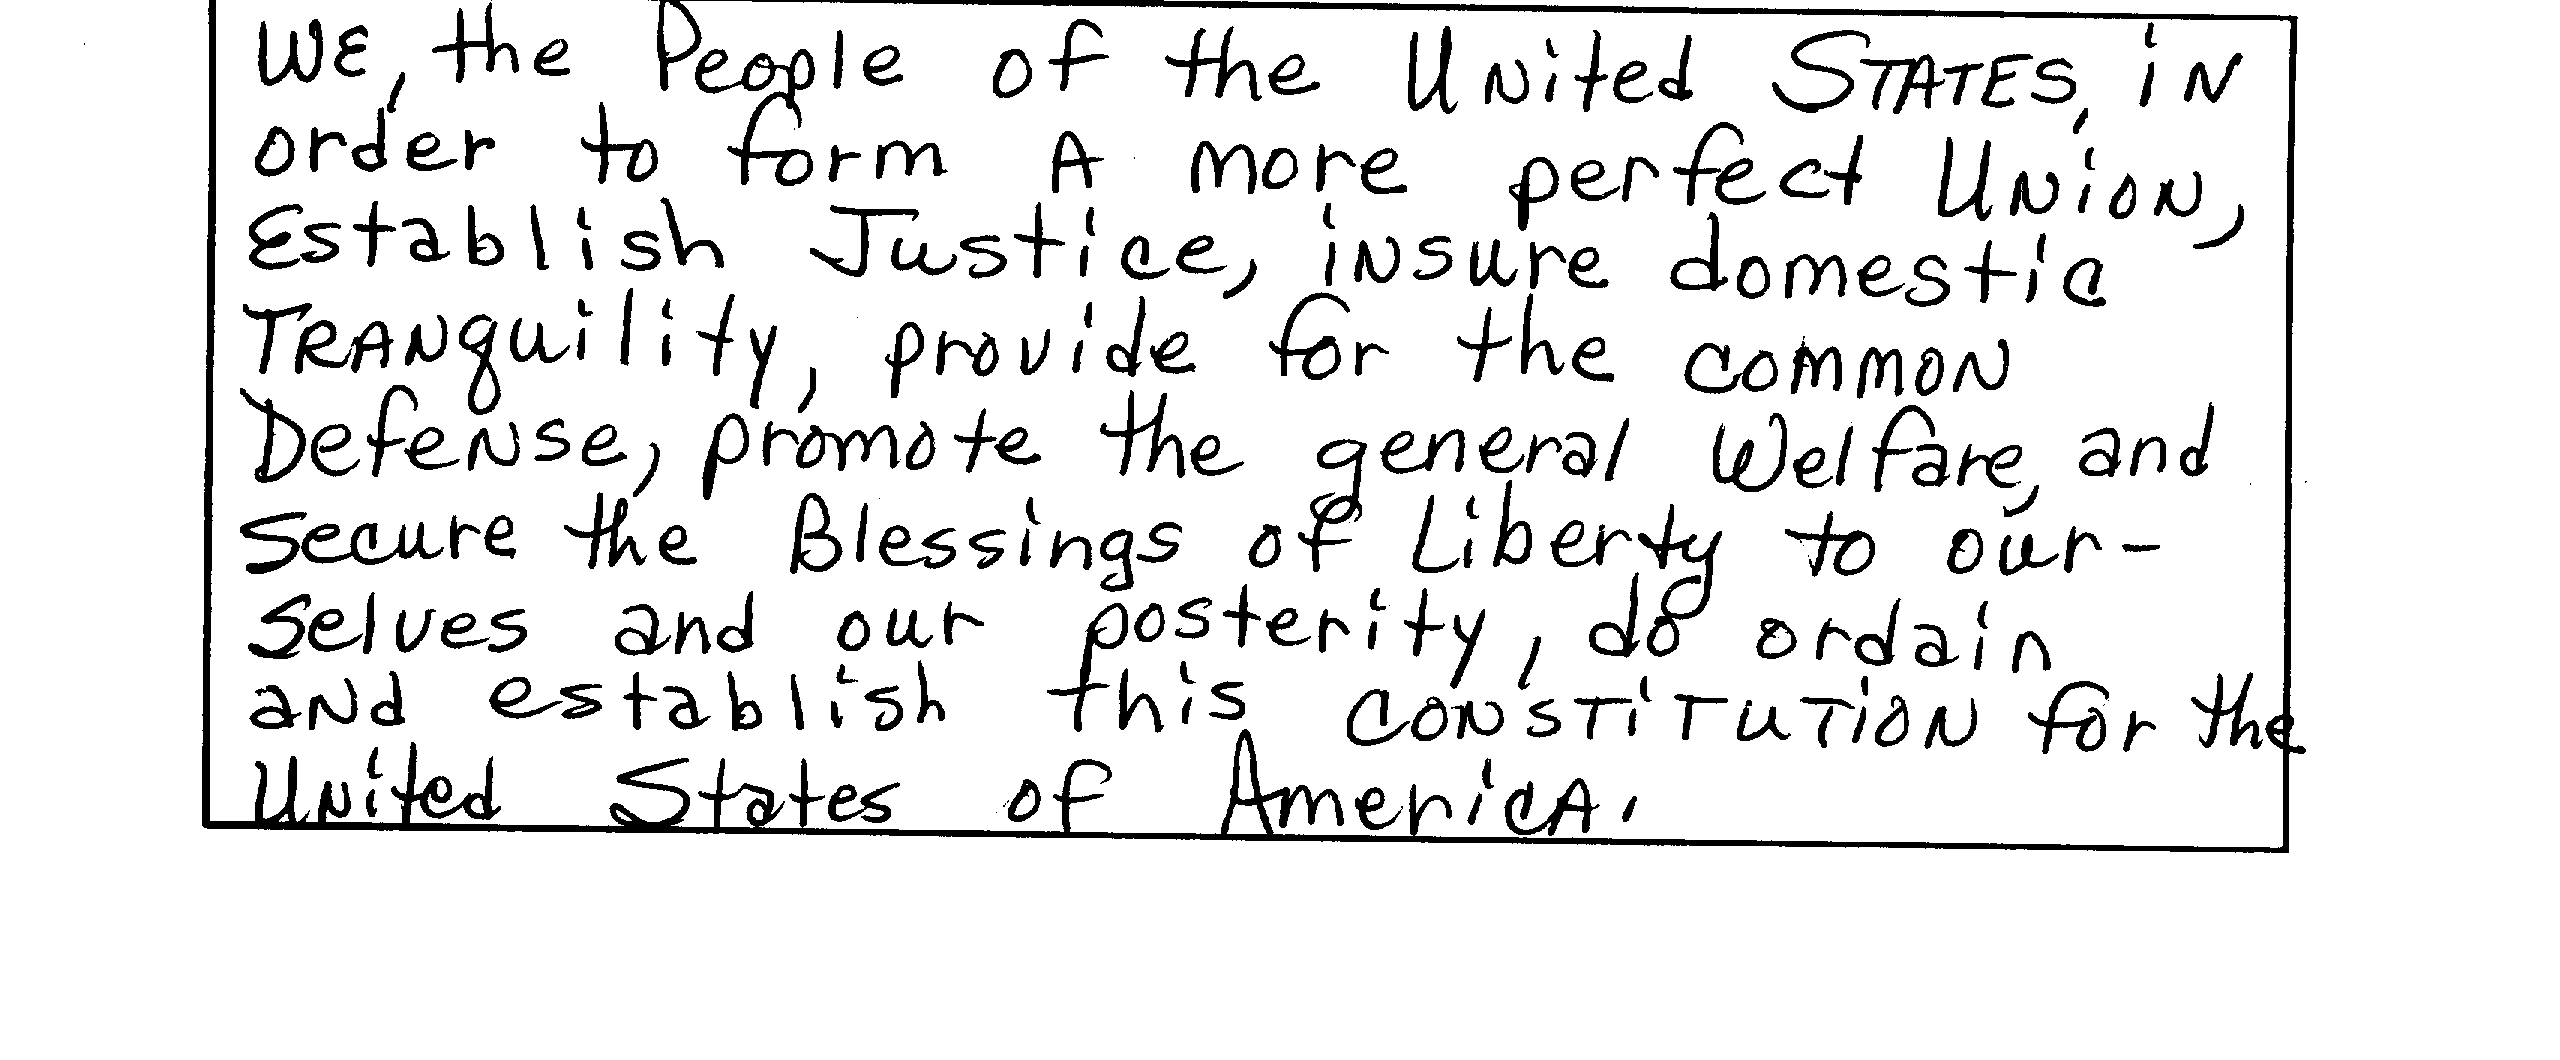 WE, the People of the United STATES, iN
order to form A more perfect UNiON,
Establish Justice, iNsure domestic
TRANquility, provide for the common
DefeNse, promote the general Welfare, and
Secure the Blessings of Liberty to our-
selves and our posterity, do ordain
aNd establish this CONSTiTUTiON for the
UNited States of AmericA.